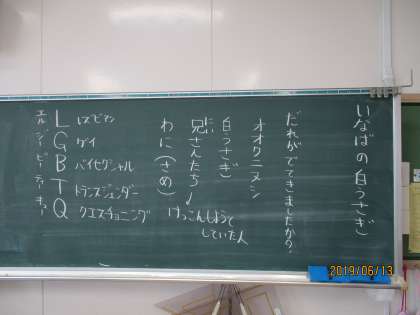 いなばの白うさぎ
だれがでてきましたか?
オオクニヌシ
白うさぎ
兄さんたち
にい
けっこんしようと
していた人
わに(さめ)
L レズビアン
G ゲイ
B バイセクシャル
T トランスジェンダー
Q クエスチョニング
エル ジー ビー ティー キュー
2019/06/13